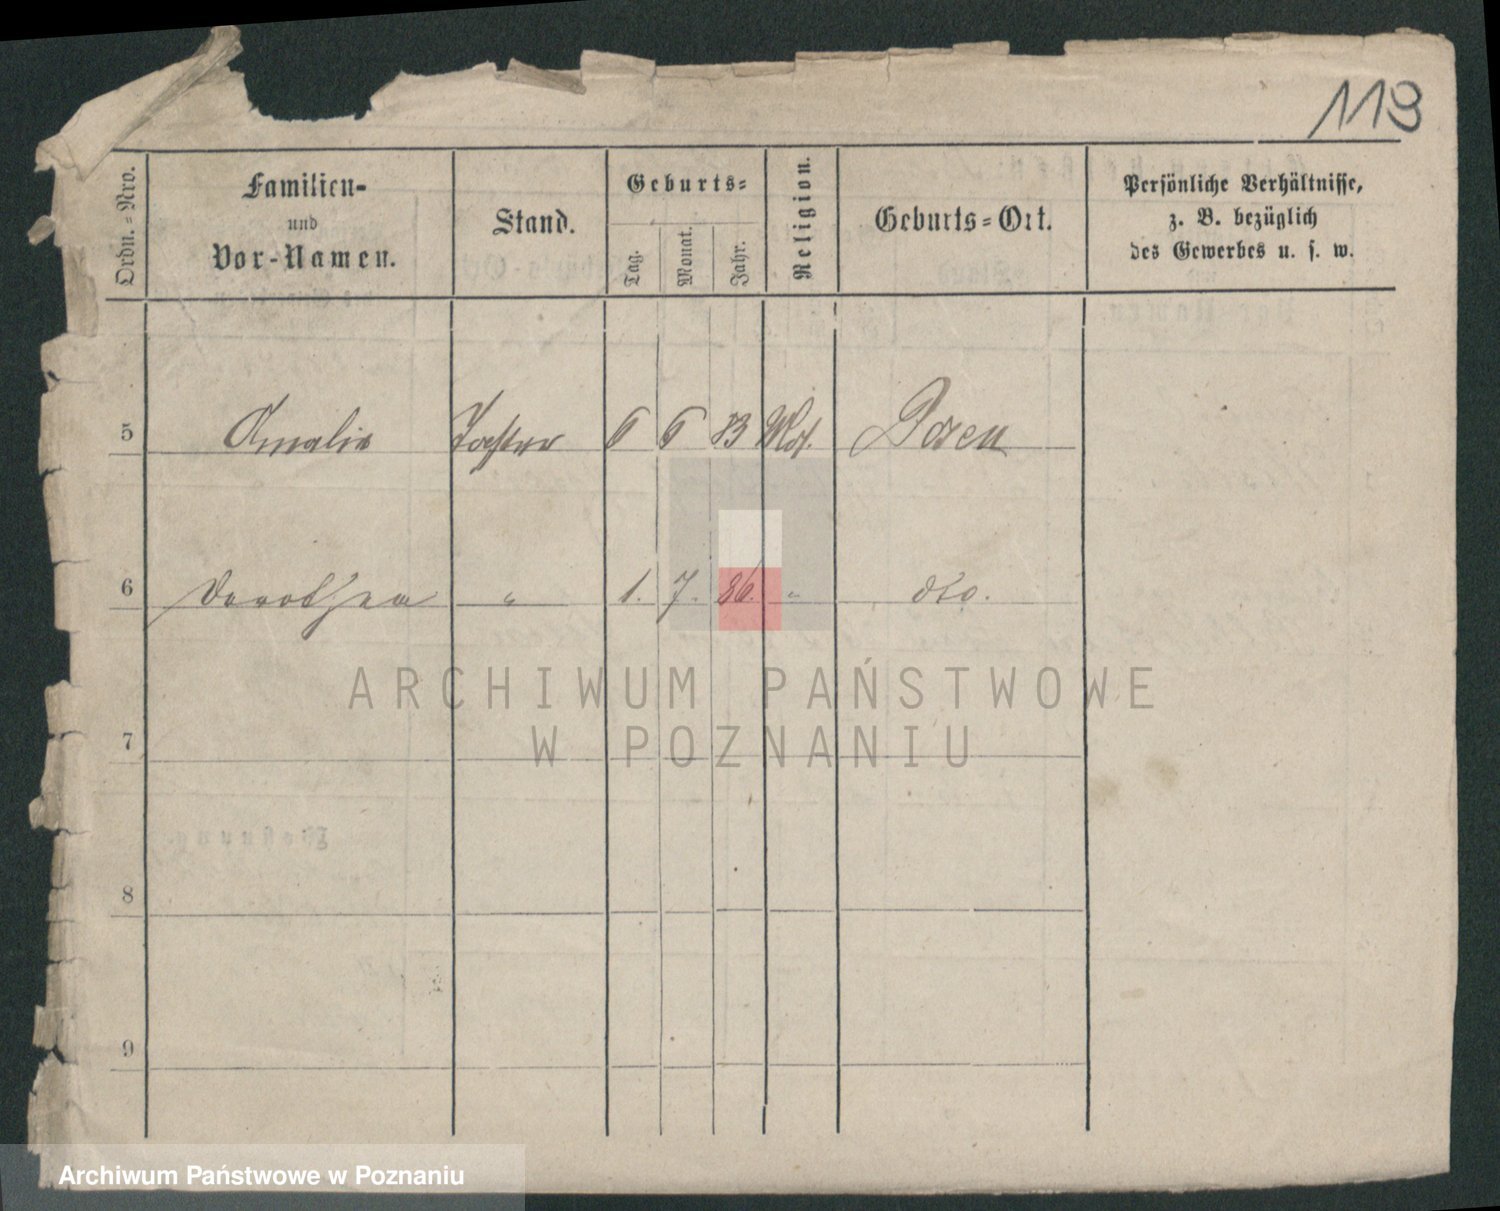 113
Ordn.=Nro.
Familien-
und
Vor-Namen.
Stand.
Geburts=
Tag.
Monat.
Jahr.
Religion.
Geburts=Ort.
Persönliche Verhältnisse,
z. B. bezüglich
des Gewerbes u. s. w.
5 Amalie Tochter 6 6 83 Posen
6 Dorothea " 1. 7. 86. " dto.
ARCHIWUM PAŃSTWOWE
W POZNANIU
7
8
9
Archiwum Państwowe w Poznaniu